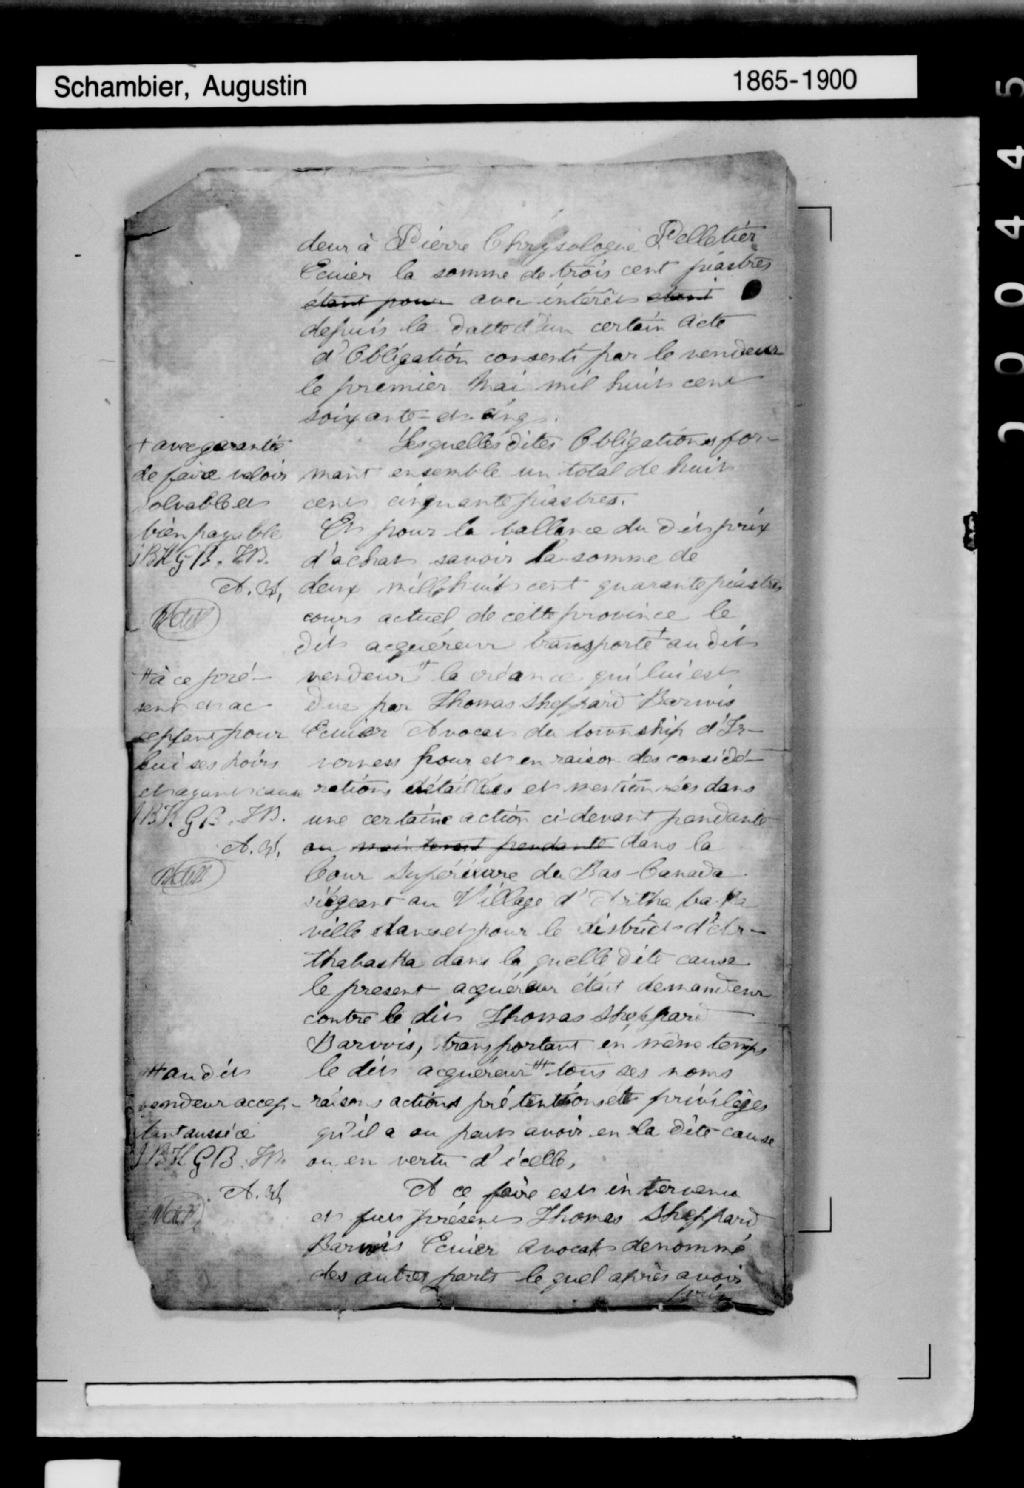 Schambier, Augustin 1865-1900
00445
deur à Pierre Chrysologue Pelletier
Ecuier la somme de trois cent piastres
étant pour avec intérêts étant
depuis la datte d'un certain Acte
d'Obligation consenti par le vendeur
le premier Mai mil huit cent
soixante-et-cinq.
Lesquelles dites Obligations for-
mant ensemble un total de huit
cents cinquante piastres.
Et pour la ballance du dit prix
d'achat savoir la somme de
deux mille huit cent quarante piastres
cours actuel de cette province le
dit acquéreur transporte + au dit
vendeur # la créance qui lui est
due par Thomas Sheppard Barwis
Ecuier Avocat du township d'In-
verness pour et en raison des considé-
rations détaillées et mentionnées dans
une certaine action ci-devant pendante
ou maintenant pendante dans la
Cour Supérieure du Bas-Canada
siégeant au Village d'Arthabaska
ville dans et pour le district d'Ar-
thabaska dans laquelle dite cause
le present acquéreur était demandeur
contre le dit Thomas Sheppard
Barwis, transportant en même temps
le dit acquéreur ### tous ses noms
raisons actions prétentions et privilèges
qu'il a ou peut avoir en la dite cause
ou en vertu d'icelle.
A ce faire est intervenu
et fut présent Thomas Sheppard
Barwis Ecuier avocat denommé
des autres parts lequel après avoir
+ avec garantie
de faire valoir
solvable et
bien payable
JBH GB. TB.
A. S.
# à ce pré-
sent et ac
ceptant pour
lui ses hoirs
et ayant cause
JBH GB. TB.
A. S.
### au dit
vendeur accep-
tant aussi ce
JBH GB. TB.
A. S.